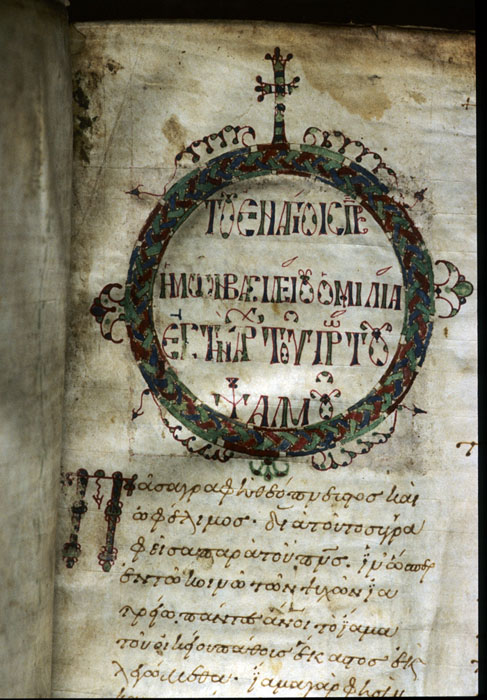 ΤΟΥ ΕΝ ΑΓΙΟΙΣ ΠΡΣ
ΗΜΩΝ ΒΑΣΙΛΕΙΟΥ ΟΜΙΛΙΑ
ΕΙΣ ΤΗΝ ΑΡΧ ΤΟΥ ΠΡΩΤΟΥ
ΨΑΛΜΟΥ
Πᾶσα γραφὴ θεόπνευστος καὶ
ὠφέλιμος· διὰ τοῦτο συγγρα
φεῖσα παρὰ τοῦ πνς· ἵν' ὥσπερ
ἐν τῶ κοινῶ τῶν ψυχῶν ἰα
τρείω· πάντες ἄνοι τὸ ἴαμα
τοῦ οἰκείου πάθους ἕκαστος ἐκ
λεγώμεθα· ἴαμα γὰρ φησι